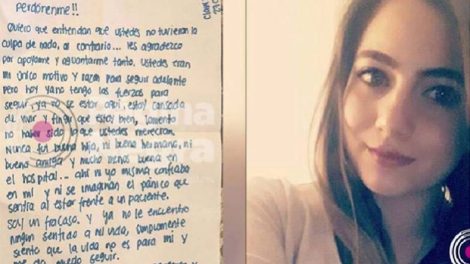 Perdónenme!!
Quiero que entiendan que ustedes no tuvieron la
culpa de nada, al contrario... les agradezco
por apoyarme y aguantarme tanto. Ustedes eran
mi único motivo y razón para seguir adelante
pero hoy ya no tengo las fuerzas para
seguir, ya no se estar aquí, estoy cansada
de vivir y fingir que estoy bien, lamento
no haber sido lo que ustedes merecían.
Nunca fui buena hija, ni buena hermana, ni
buena amiga y mucho menos buena en
el hospital... ahí ni yo misma confiaba
en mí y ni se imaginan el pánico que
sentía al estar frente a un paciente.
Soy un fracaso. Y ya no le encuentro
ningún sentido a mi vida, simplemente
siento que la vida no es para mí y
no puedo seguir.